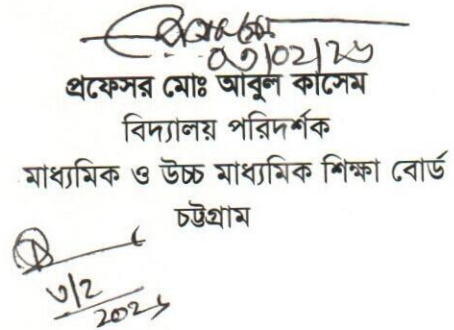 ০৩/০২/২৬
প্রফেসর মোঃ আবুল কাসেম
বিদ্যালয় পরিদর্শক
মাধ্যমিক ও উচ্চ মাধ্যমিক শিক্ষা বোর্ড
চট্টগ্রাম
৩/২